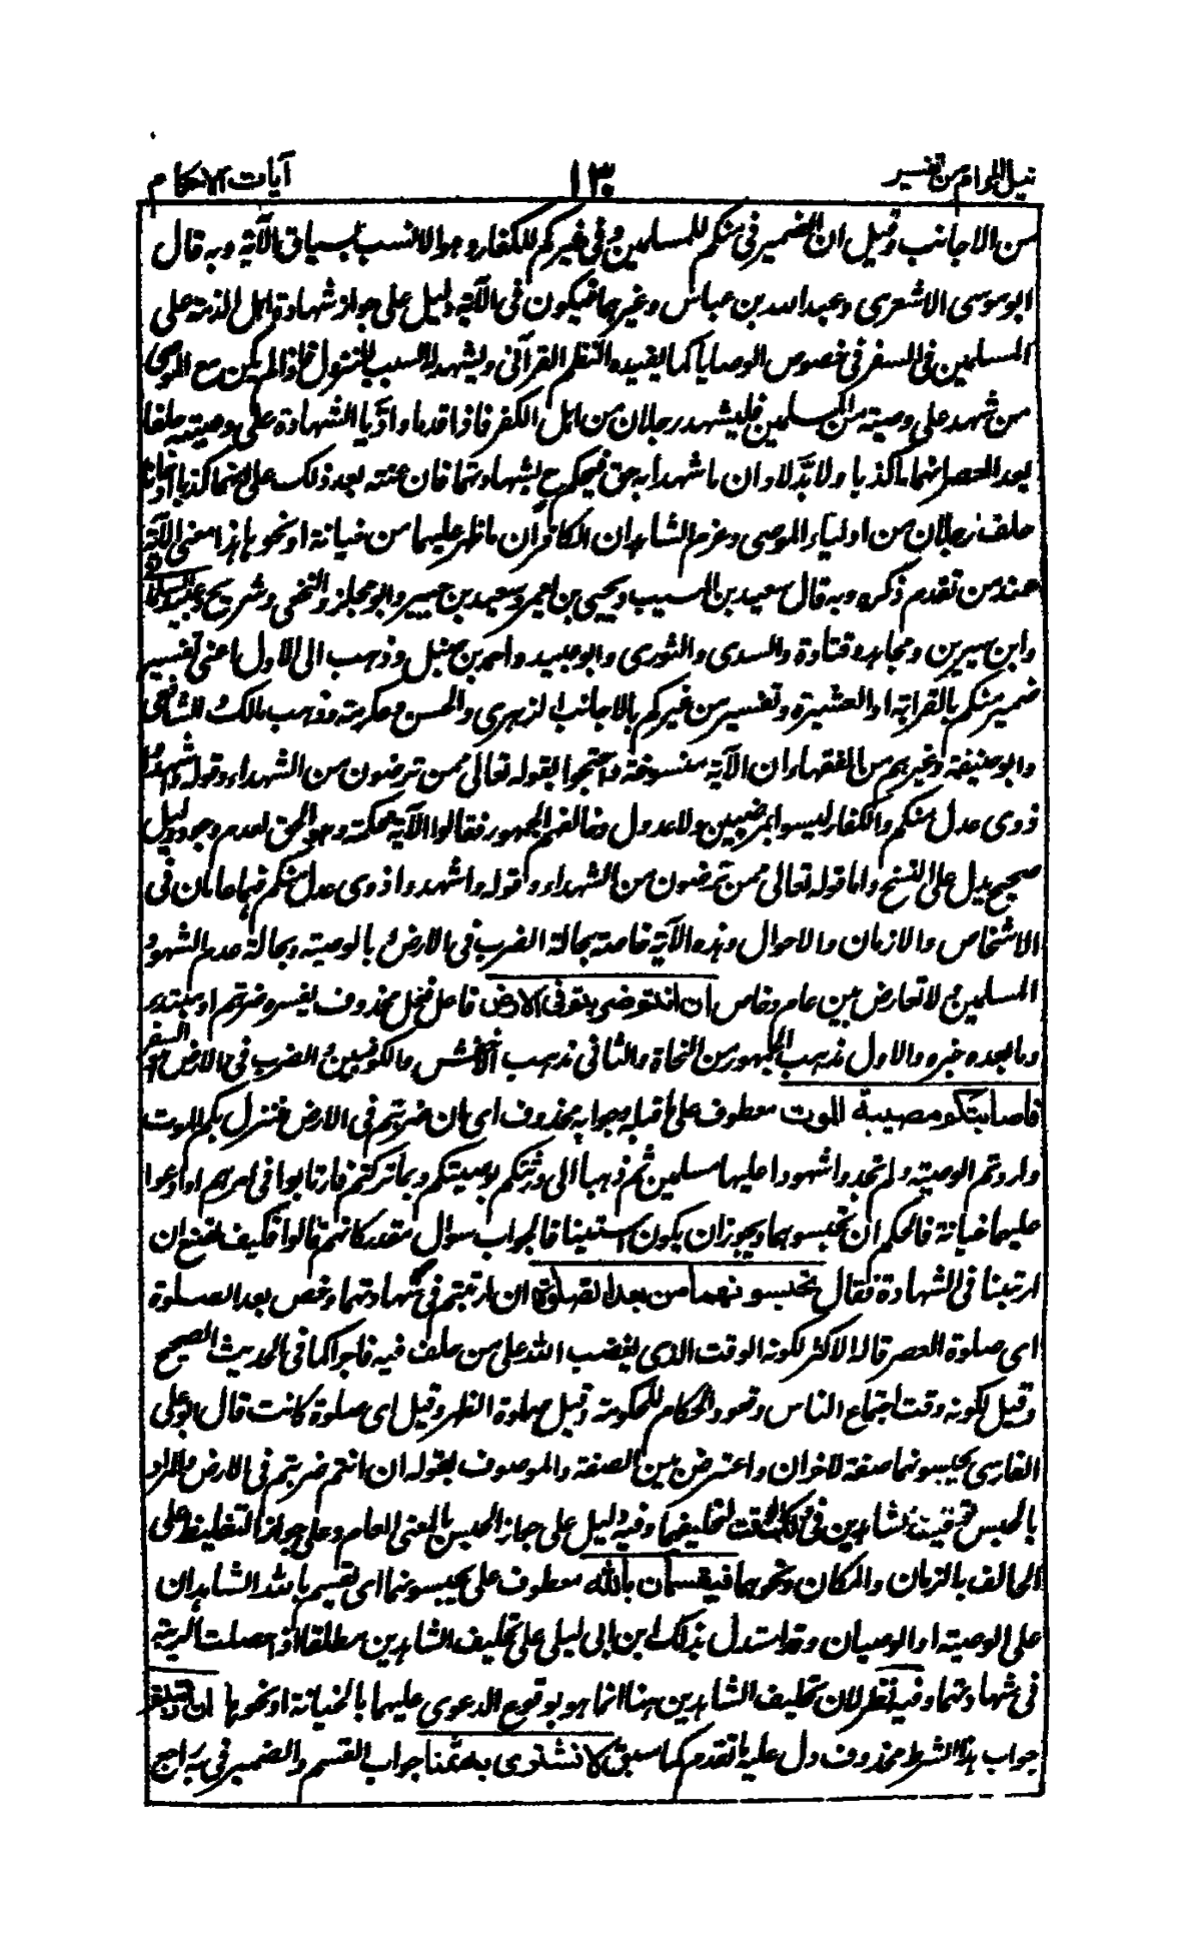 نيل المرام من تفسير ١٣٠ آيات الاحكام
من الاجانب وقيل ان الضمير فى منكم للمسلمين وفى غيركم للكفار وهو الانسب بسياق الآية وبه قال
ابو موسى الاشعرى وعبد الله بن عباس وغيرهما فيكون فى الآية دليل على جواز شهادة اهل الذمة على
المسلمين فى السفر فى خصوص الوصايا كما يفيده النظم القرآنى ويشهد له السبب للنزول فاذا لم يكن مع الموصى
من شهد على وصيته من المسلمين فليشهد رجلان من اهل الكفر فاذا قدما وادّيا الشهادة على وصيته حلفا
بعد العصر انهما ما كذبا ولا بدّلا وان ما شهدا به حق فيحكم ح بشهادتهما فان عثر بعد ذلك على انهما كذبا او خانا
حلف رجلان من اولياء الموصى وغرم الشاهدان الكافران ما ظهر عليهما من خيانة او نحوها هذا معنى الآية
عند من تقدم ذكره وبه قال سعيد بن المسيب ويحيى بن يعمر وسعيد بن جبير وابو مجلز والنخعى وشريح وعبيدة السلمانى
وابن سيرين ومجاهد وقتادة والسدى والثورى وابو عبيد واحمد بن حنبل وذهب الى الاول اعنى تفسير
ضمير منكم بالقرابة او العشيرة وتفسير من غيركم بالاجانب الزهرى والحسن وعكرمة وذهب مالك والشافعى
وابو حنيفة وغيرهم من الفقهاء ان الآية منسوخة واحتجوا بقوله تعالى ممن ترضون من الشهداء وقوله واشهدوا
ذوى عدل منكم والكفار ليسوا بمرضيين ولا عدول وخالفهم الجمهور فقالوا الآية محكمة وهو الحق لعدم وجود دليل
صحيح يدل على النسخ واما قوله تعالى ممن ترضون من الشهداء وقوله واشهدوا ذوى عدل منكم فهما عامان فى
الاشخاص والازمان والاحوال وهذه الآية خاصة بحالة الضرب فى الارض و بالوصية وبحالة عدم الشهود
المسلمين ولا تعارض بين عام وخاص ان انتم ضربتم فى الارض فاعل فعل محذوف يفسره ضربتم او مبتدء
وما بعده خبره والاول مذهب الجمهور من النحاة والثانى مذهب الاخفش والكوفيين و الضرب فى الارض هو السفر
فاصابتكم مصيبة الموت معطوف على ما قبله وجوابه محذوف اى ان ضربتم فى الارض فنزل بكم الموت
واردتم الوصية ولم تجدوا شهودا عليها مسلمين ثم ذهبا الى ورثتكم بوصيتكم وبما تركتم فارتابوا فى امرهم او ادعوا
عليهما خيانة فالحكم ان تحبسوهما ويجوز ان يكون استينافا لجواب سؤال مقدر كانهم قالوا فكيف نصنع ان
ارتبنا فى الشهادة فقال تحبسونهما من بعد الصلوة ان ارتبتم فى شهادتهما وخص بعد الصلوة
اى صلوة العصر قاله الاكثر لكونه الوقت الذى يغضب الله على من حلف فيه فاجرا كما فى الحديث الصحيح
وقيل لكونه وقت اجتماع الناس وقعود الحكام للحكومة وقيل صلوة الظهر وقيل اى صلوة كانت قال ابو على
الفارسى تحبسونهما صفة لآخران واعترض بين الصفة والموصوف بقوله ان انتم ضربتم فى الارض والمراد
بالحبس توقيف الشاهدين فى ذلك الوقت لتحليفهما وفيه دليل على جواز الحبس بالمعنى العام وعلى جواز التغليظ على
الحالف بالزمان والمكان ونحوهما فيقسمان بالله معطوف على تحبسونهما اى يقسم بالله الشاهدان
على الوصية او الوصيان وقد استدل بذلك ابن ابى ليلى على تحليف الشاهدين مطلقا اذا حصلت الريبة
فى شهادتهما وفيه نظر لان تحليف الشاهدين هنا انما هو بوقوع الدعوى عليهما بالخيانة او نحوها ان ارتبتم
جواب هذا الشرط محذوف دل عليه ما تقدم كما سبق لا نشترى به ثمنا جواب القسم والضمير فى به راجع